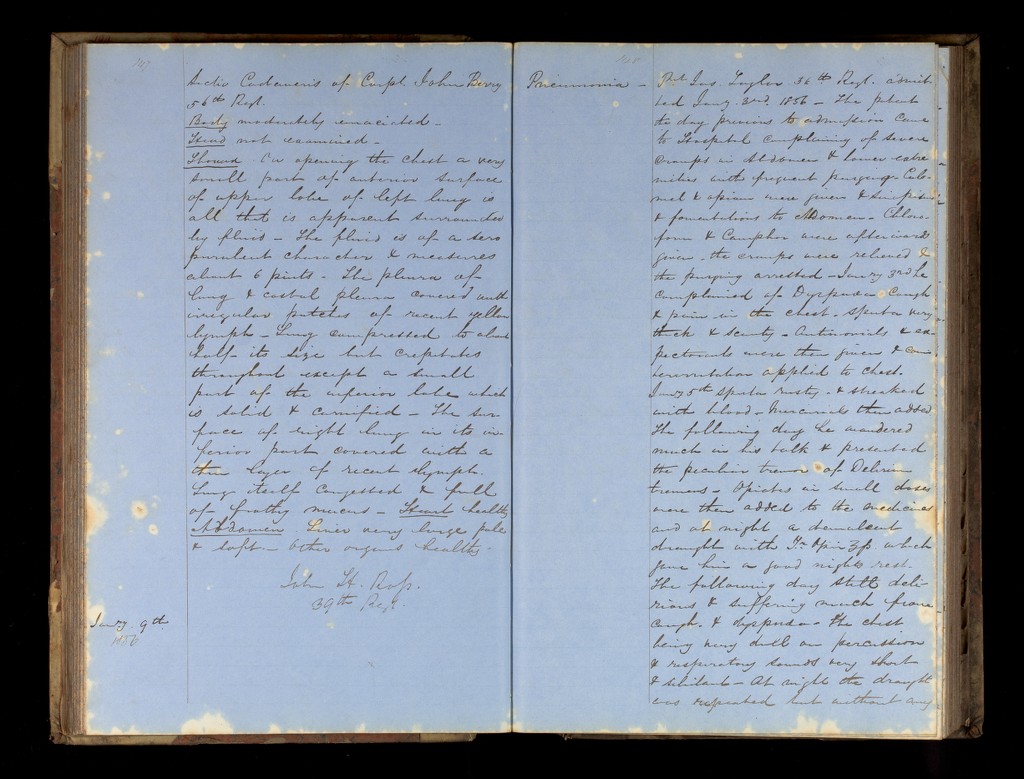 147
Sectio Cadaveris of Corpl. John Berry
56th Regt.
Body moderately emaciated -
Head not examined -
Thorax. On opening the chest a very
small part of anterior surface
of upper lobe of left lung is
all that is apparent surrounded
by fluid - The fluid is of a sero
purulent character & measures
about 6 pints - The pleura of
lung & costal pleura covered with
irregular patches of recent yellow
lymph - Lung compressed to about
half its size but crepitates
throughout except a small
part of the inferior lobe which
is solid & carnified - The sur-
face of right lung in its in-
ferior part covered with a
thin layer of recent lymph.
Lung itself congested & full
of frothy mucus - Heart healthy
Abdomen Liver very large pale
& soft - Other organs healthy.
John H. Ross.
39th Regt.
Janry 9th
1856
148
Pneumonia -
Pvt Jas. Taylor 36th Regt. admit
ted Janry. 3rd. 1856 - The patient
the day previous to admission came
to Hospital complaining of severe
cramps in Abdomen & lower extre
mities with frequent purging - Calo-
mel & opium were given & Sinapisms
& fomentations to Abdomen - Chloro-
form & Camphor were afterwards
given - the cramps were relieved &
the purging arrested - Janry 3rd he
complained of Dyspnoea Cough
& pain in the chest - Sputa very
thick & scanty - Antimonials & ex-
pectorants were then given & cou
nterirritation applied to chest.
Janry 5th Sputa rusty & streaked
with blood - Mercurials then added
The following day he wandered
much in his talk & presented
the peculiar tremor of Delirium
tremens - Opiates in small doses
were then added to the medicines
and at night a demulcent
draught with Tr. Opii ʒß. which
gave him a good nights rest.
The following day still deli-
rious & suffering much from
cough & dyspnoea - The chest
being very dull on percussion
& respiratory sounds very short
& sibilant - At night the draught
was repeated but without any